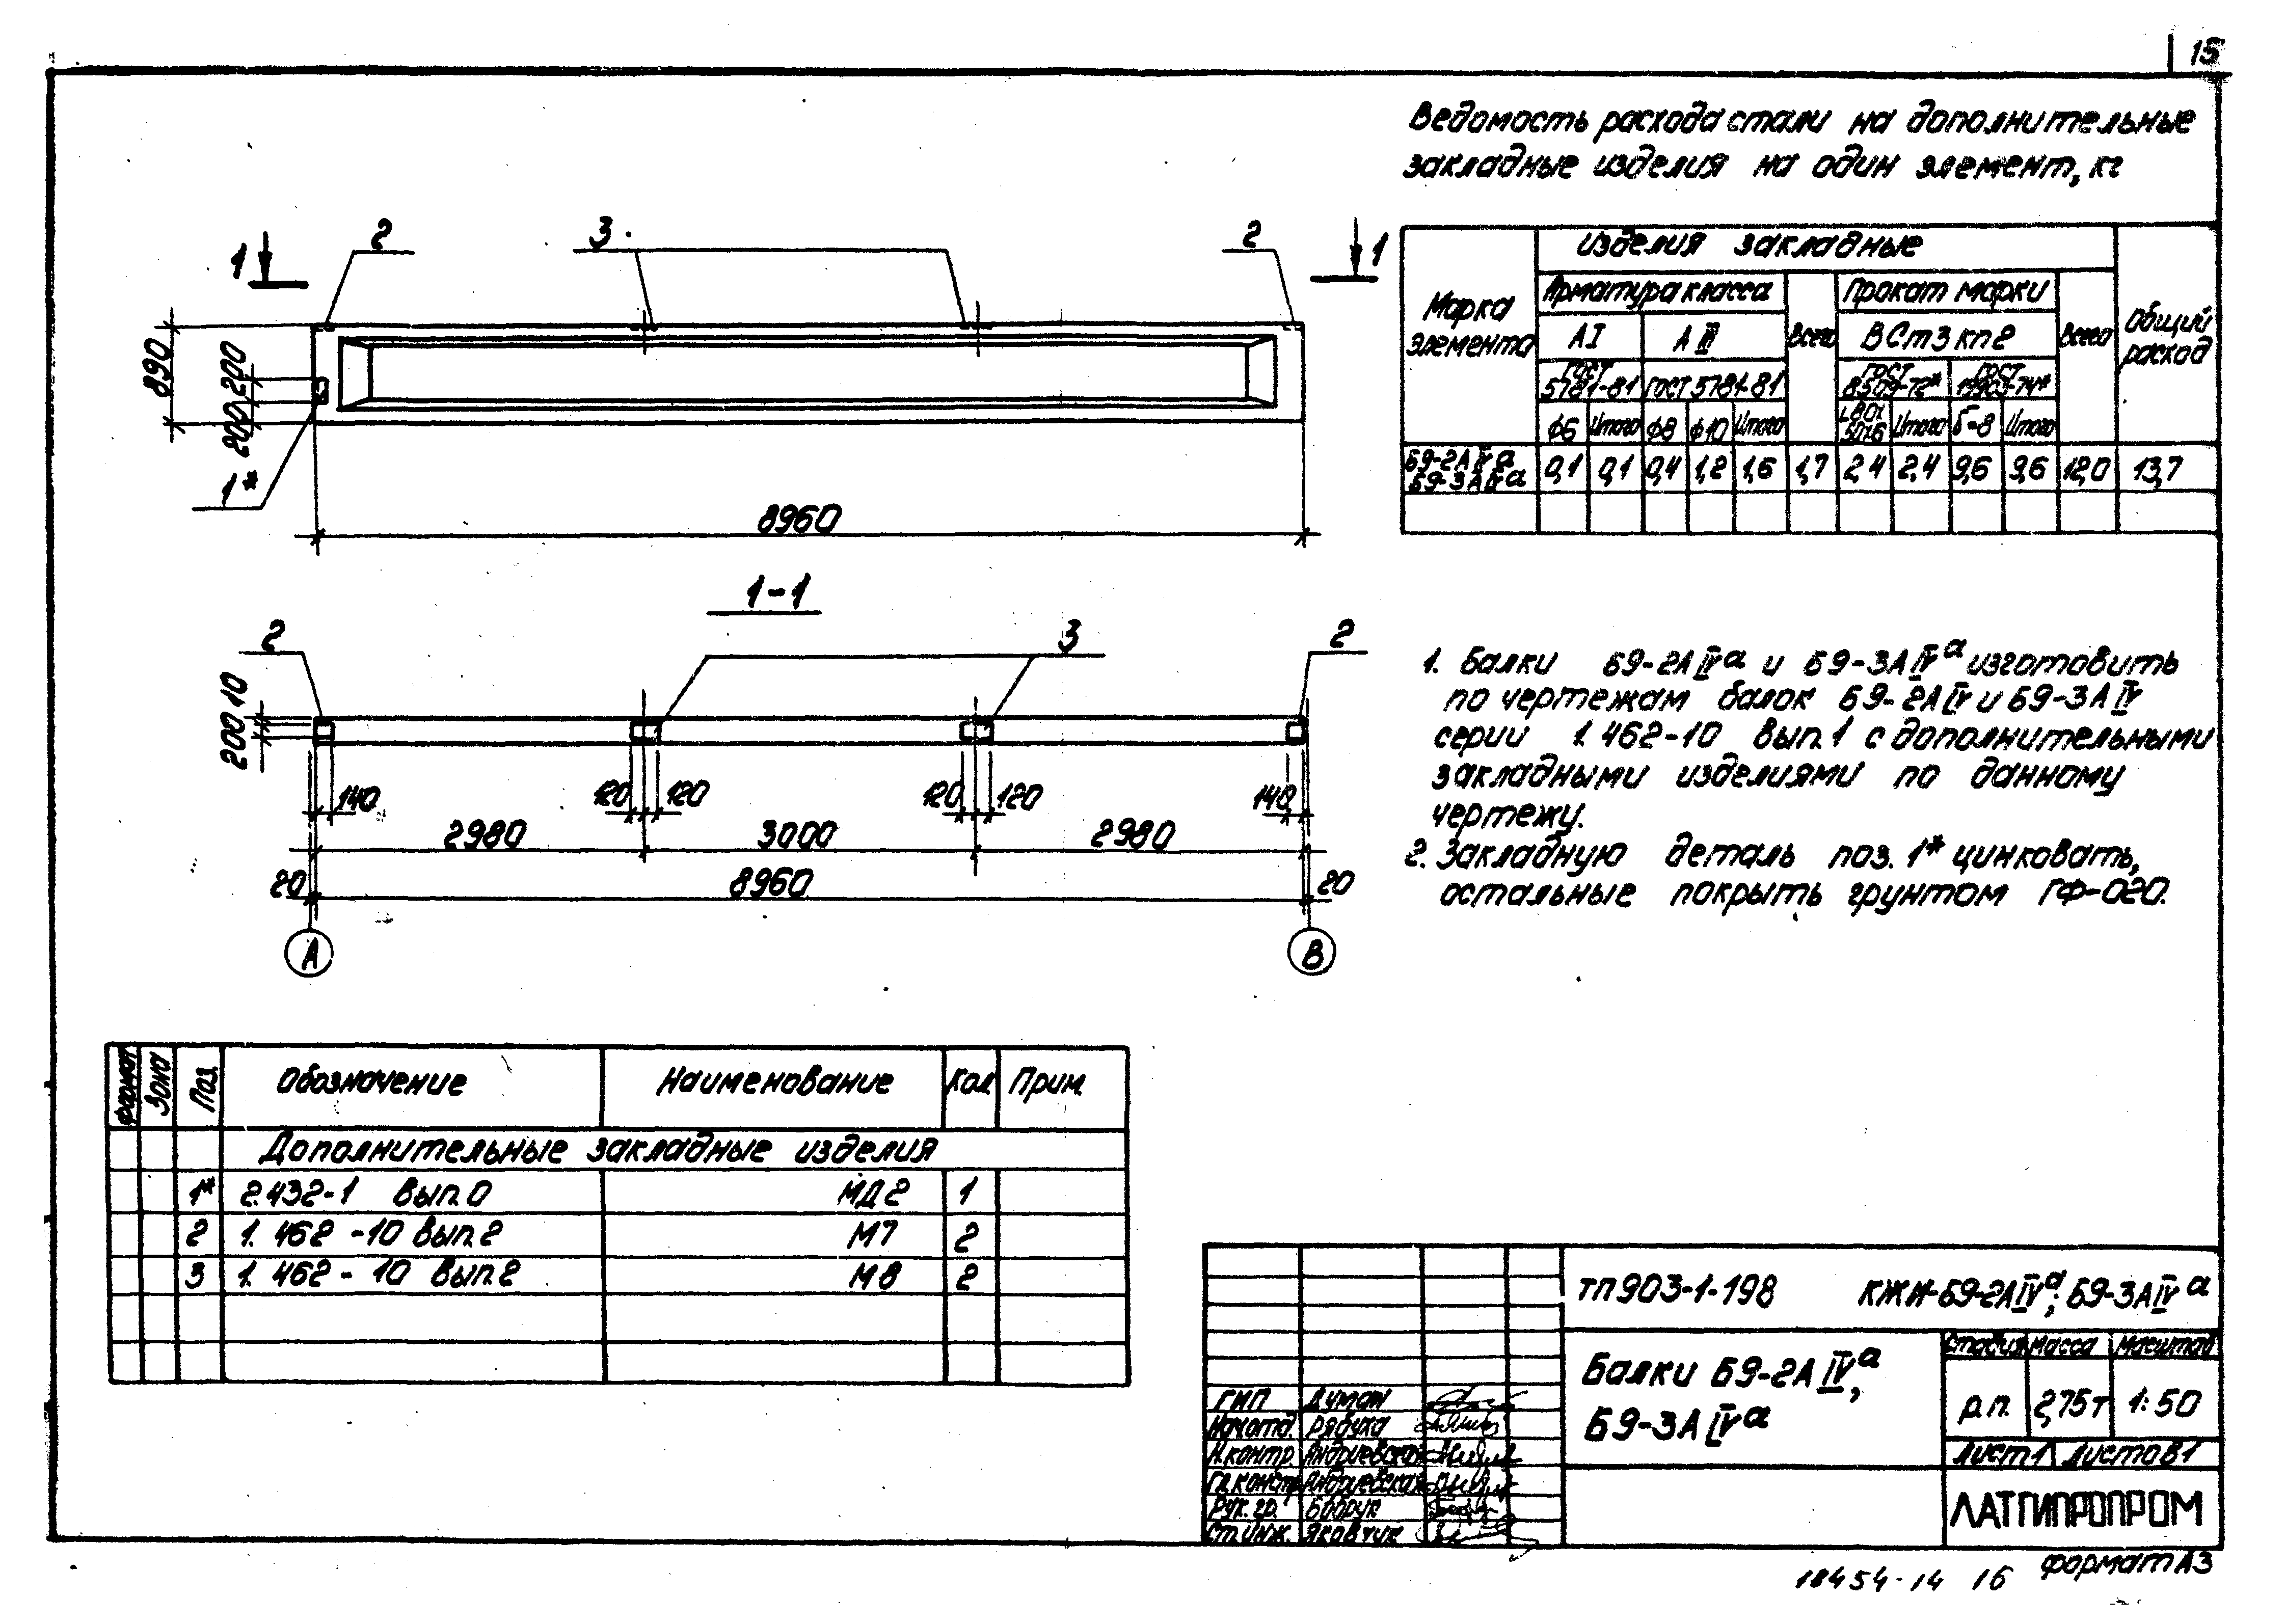 15
Ведомость расхода стали на дополнительные
закладные изделия на один элемент, кг
Марка элемента
Изделия закладные
Арматура класса
Всего
Прокат марки
Всего
Общий расход
АI
АIII
ВСт3кп2
ГОСТ 5781-81
ГОСТ 5781-81
ГОСТ 8509-72*
ГОСТ 19903-74*
ф6
Итого
ф8
ф10
Итого
L80х50х6
Итого
δ=8
Итого
Б9-2АIVа
Б9-3АIVа
0,1 0,1 0,4 1,2 1,6 1,7 2,4 2,4 9,6 9,6 12,0 13,7
1 2 3 2 1
890
200
200
1*
8960
1-1
2 3 2
10
200
140 120 120 120 120 148
2980 3000 2980
20 8960 20
А В
1. Балки Б9-2АIVа и Б9-3АIVа изготовить
по чертежам балок Б9-2АIV и Б9-3АIV
серии 1.462-10 вып.1 с дополнительными
закладными изделиями по данному
чертежу.
2. Закладную деталь поз. 1* цинковать,
остальные покрыть грунтом ГФ-020.
Формат Зона Поз. Обозначение Наименование Кол. Прим.
Дополнительные закладные изделия
1* 2.432-1 вып.0 МД2 1
2 1.462-10 вып.2 М7 2
3 1.462-10 вып.2 М8 2
ТП 903-1-198 КЖИ-Б9-2АIVа; Б9-3АIVа
Балки Б9-2АIVа,
Б9-3АIVа
Стадия Масса Масштаб
р.п. 2,75т 1:50
Лист 1 Листов 1
ЛАТГИПРОПРОМ
ГИП Думан
Нач.отд. Рябуха
Н.контр. Андриевская
Гл.констр. Андриевская
Рук.гр. Бобрук
Ст.инж. Яковчик
18454-14 16 Формат А3